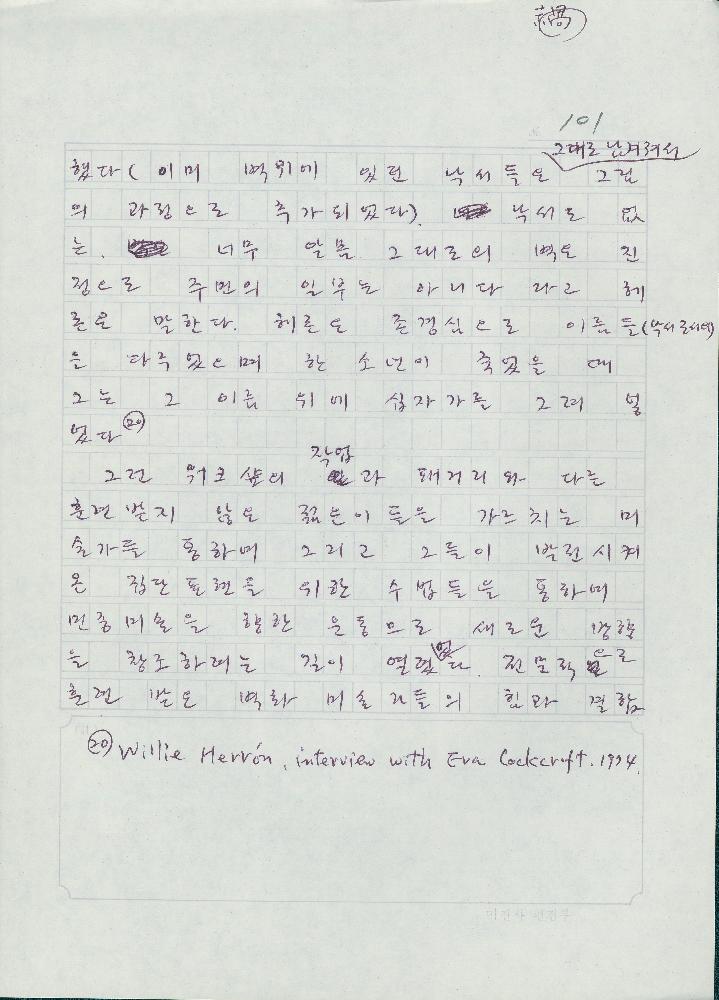 禍
101
그대로 남겨져서
했다(이미 벽위에 있던 낙서들은 그림
의 과정으로 추가되었다). 낙서도 없
는, 너무 말끔 그대로의 벽은 진
정으로 주변의 일부는 아니다 라고 헤
론은 말한다. 헤론은 존경심으로 이름들(낙서로서의)
을 다루었으며 한 소년이 죽었을 때
그는 그 이름 위에 십자가를 그려 넣
었다⑳
그런 워크샾의 작업과 패거리와 다른
훈련받지 않은 젊은이들을 가르치는 미
술가들 통하여 그리고 그들이 발전시켜
온 집단 표현을 위한 수법들을 통하여
민중미술을 향한 운동으로 새로운 방향
을 창조하려는 길이 열렸었다. 전문적으로
훈련 받은 벽화 미술가들의 힘과 결합
⑳ Willie Herrón, interview with Eva Cockcroft. 1974.
미진사 편집부